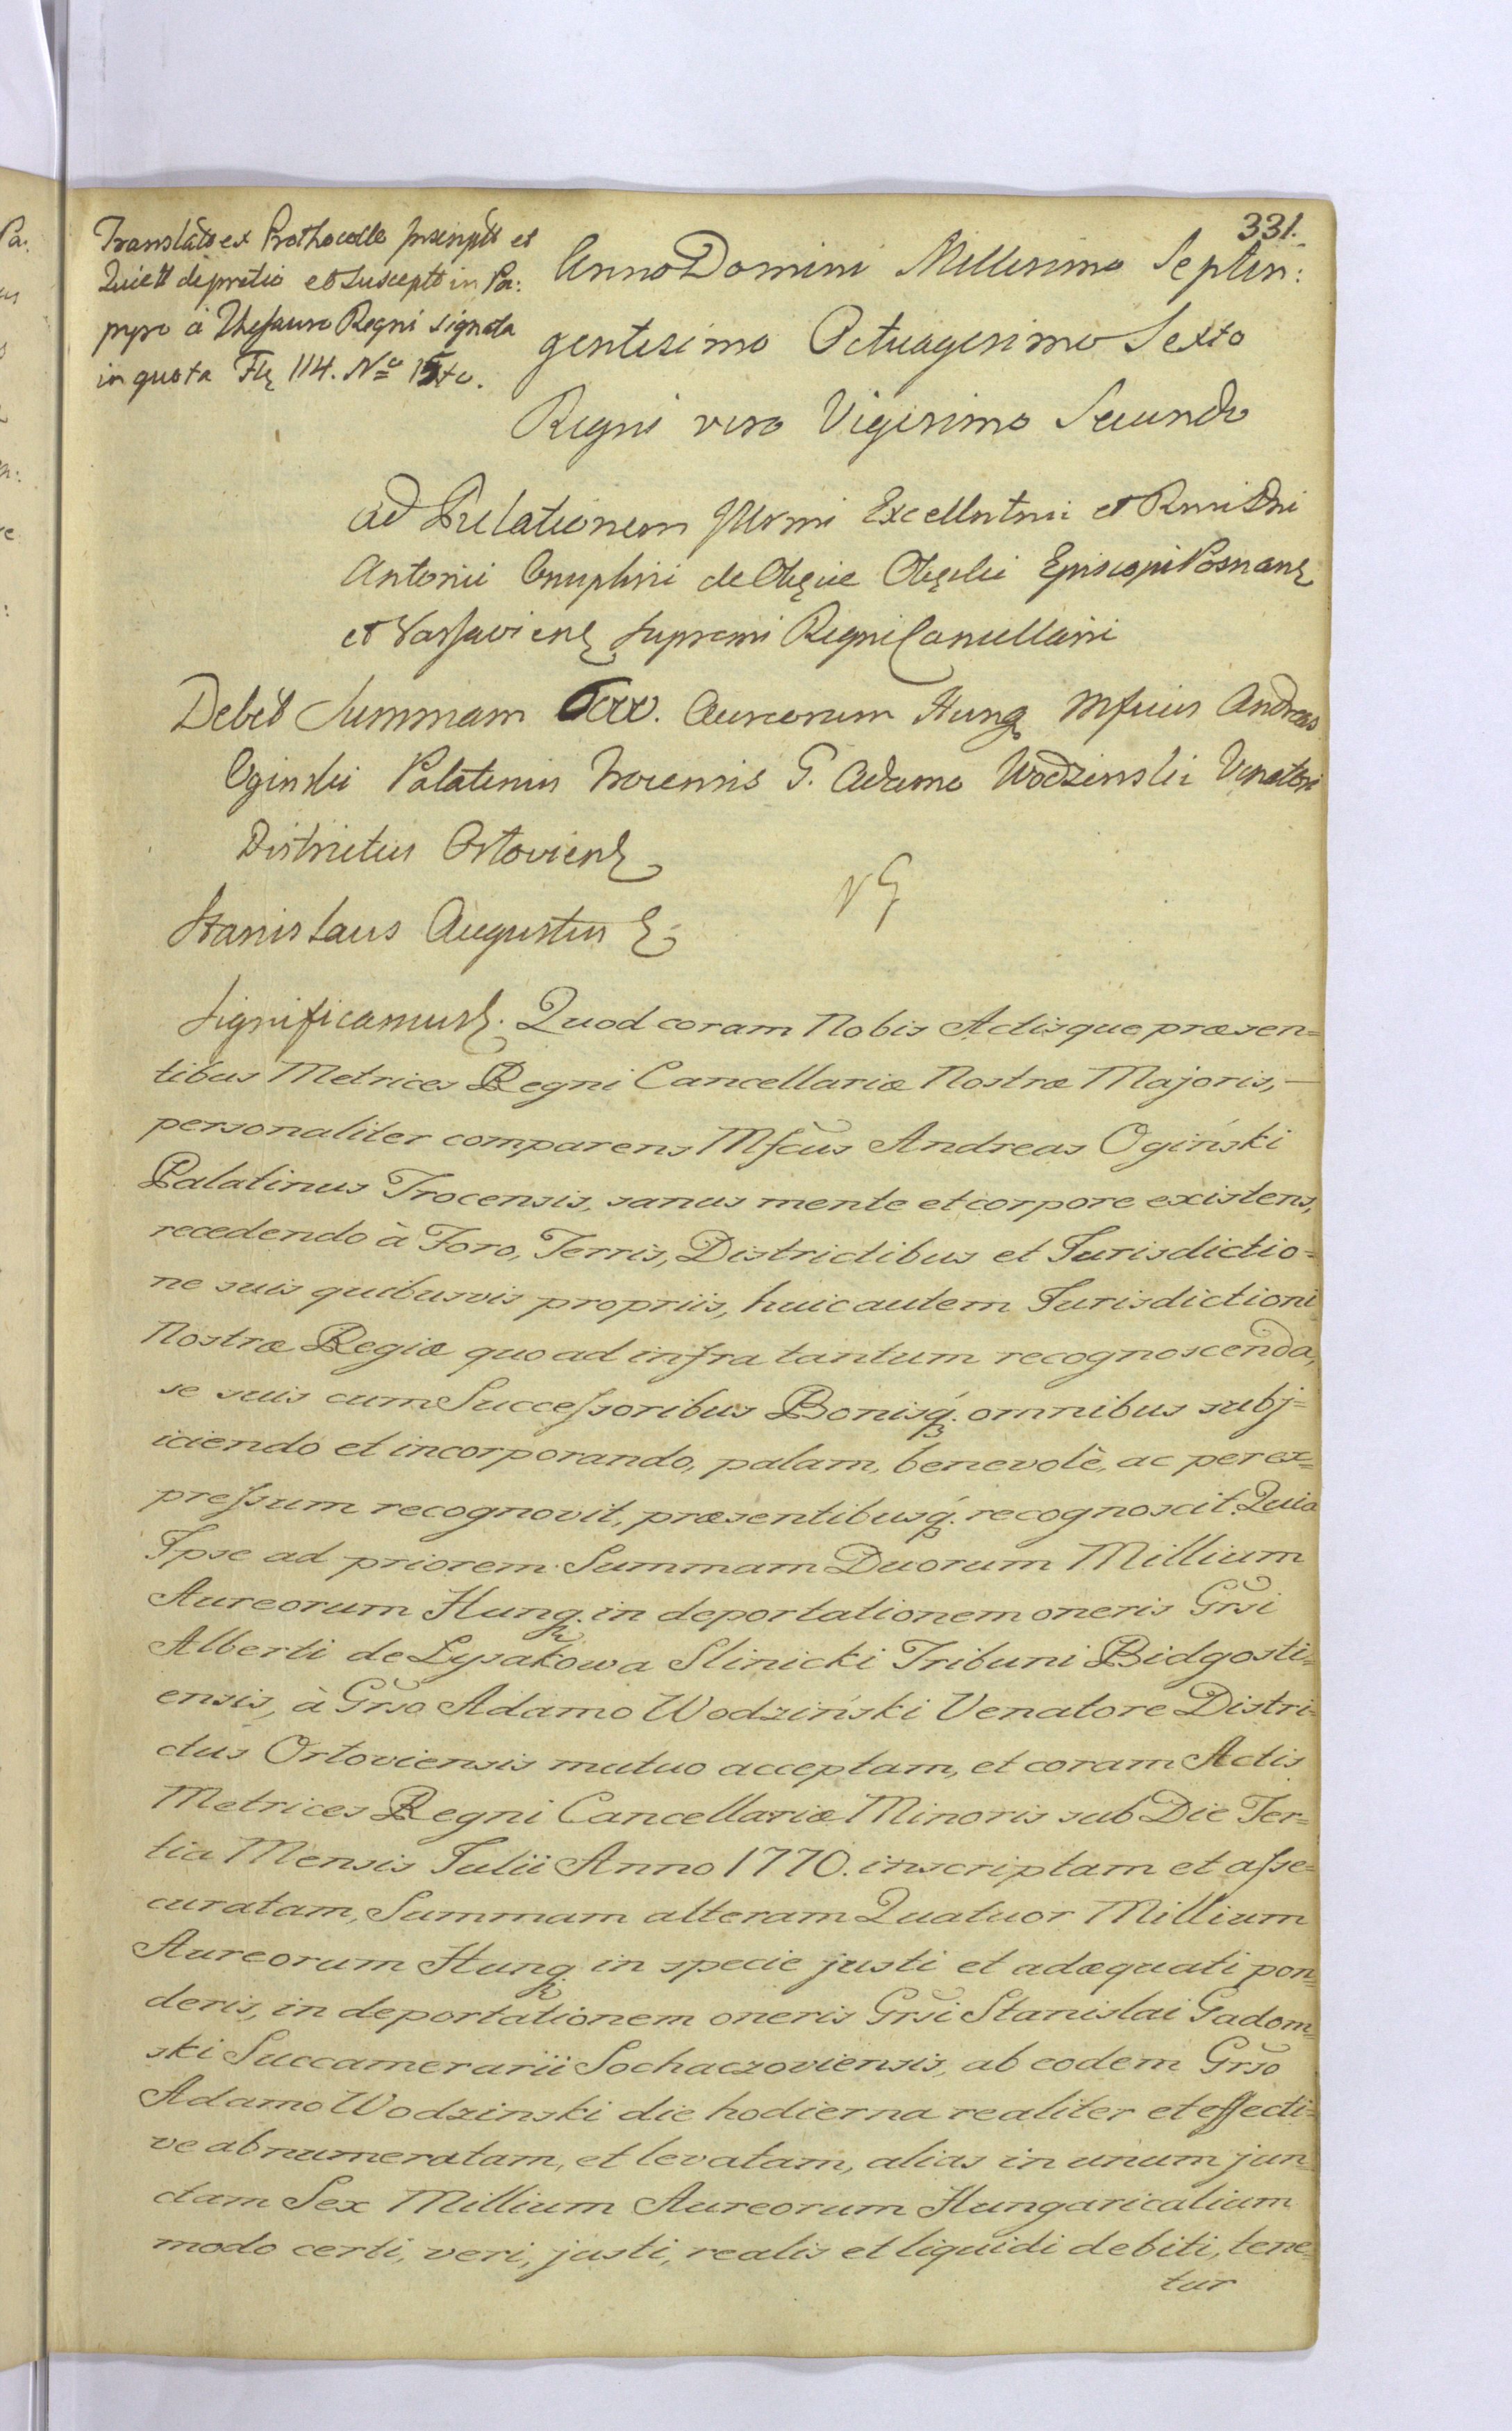 331.
Translato ex Prothocollo
et suscepto in Pa:
pyro à Thesauro Regni signata
in quota Flr 114. No
Anno Domini Millesimo Septin:
gentesimo Octuagesimo Sexto
Regni vero Vigesimo Secundo
Ad Relationem Excellntmi et Rmi Dni
Antonii Onuphrii de Okęcie Okęcki Episcopi Posnans
et Varsaviens Supremi Regni Cancellarii
Debet Summam Aureorum Hung Mficus Andreas
Oginski Palatinus Trocensis G. Adamo Wodzinski Venatori
Districtus Ortoviens
Stanislaus Augustus
Significamus. Quod coram Nobis Actisque præsen=
tibus Metrices Regni Cancellariæ Nostræ Majoris,
personaliter comparens Mfcus Andreas Ogiński
Palatinus Trocensis, sanus mente et corpore existens,
recedendo à Foro, Terris, Districtibus et Jurisdictio=
ne suis quibusvis propriis, huic autem Jurisdictioni
Nostræ Regiæ quo ad infra tantum recognoscenda,
se suis cum Successoribus Bonisq. omnibus subj=
iciendo et incorporando, palam, benevolè, ac per ex=
pressum recognovit, præsentibusq. recognoscit. Quia
Ipse ad priorem Summam Duorum Millium
Aureorum Hung. in deportationem oneris Grsi
Alberti de Lysakowa Slinicki Tribuni Bidgosti=
ensis, à Grso Adamo Wodziński Venatore Distri=
ctus Ortoviensis mutuo acceptam, et coram Actis
Metrices Regni Cancellariæ Minoris sub Die Ter=
tia Mensis Julii Anno 1770. inscriptam et asse=
curatam, Summam alteram Quatuor Millium
Aureorum Hung in specie justi et adæquati pon=
deris, in deportationem oneris Grsi Stanislai Gadom=
ski Succamerarii Sochaczoviensis, ab eodem Grso
Adamo Wodzinski die hodierna realiter et effecti=
ve abnumeratam, et levatam, alias in unum jun=
ctam Sex Millium Aureorum Hungaricalium
modo certi, veri, justi, realis et liquidi debiti, tene=
tur